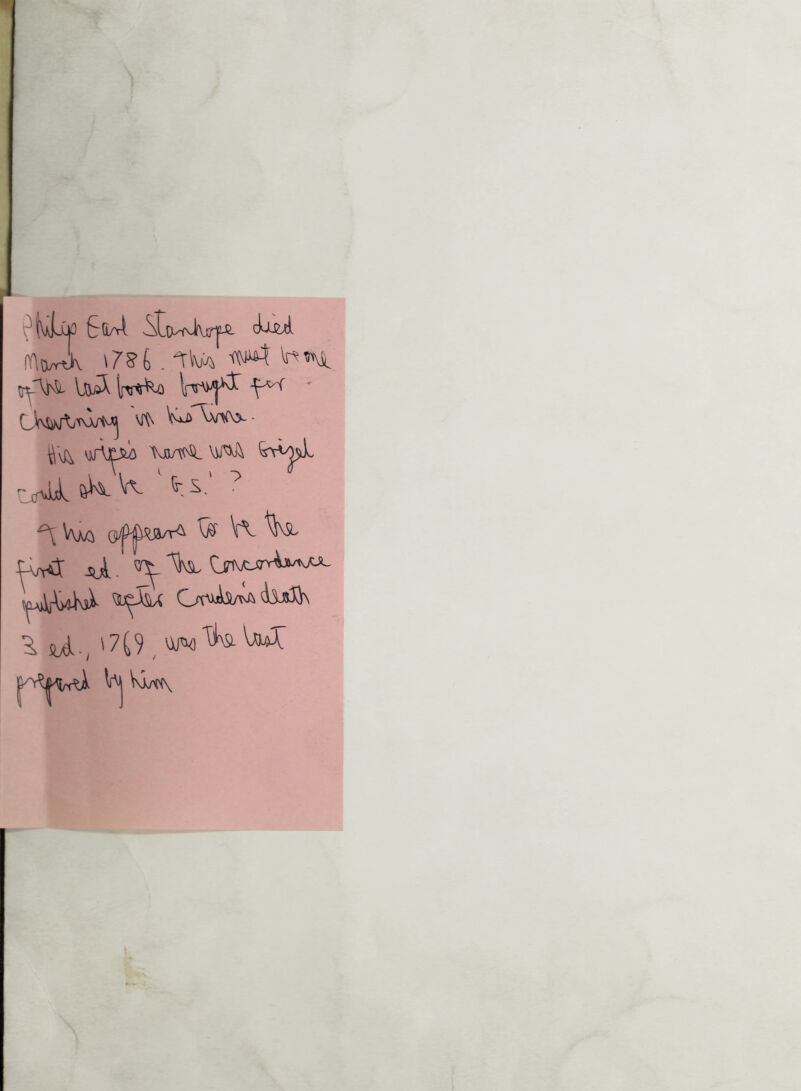 Philip Earl Stanhope died
March 1786. This must be one
of the last books bought for
Chevening in his time.
His wife's name was Grizel
Could she be 'G.S.' ?
This appears to be the
first ed. of the Concordance
published after Cruden's death
3 ed., 1769, was the last
prepared by him